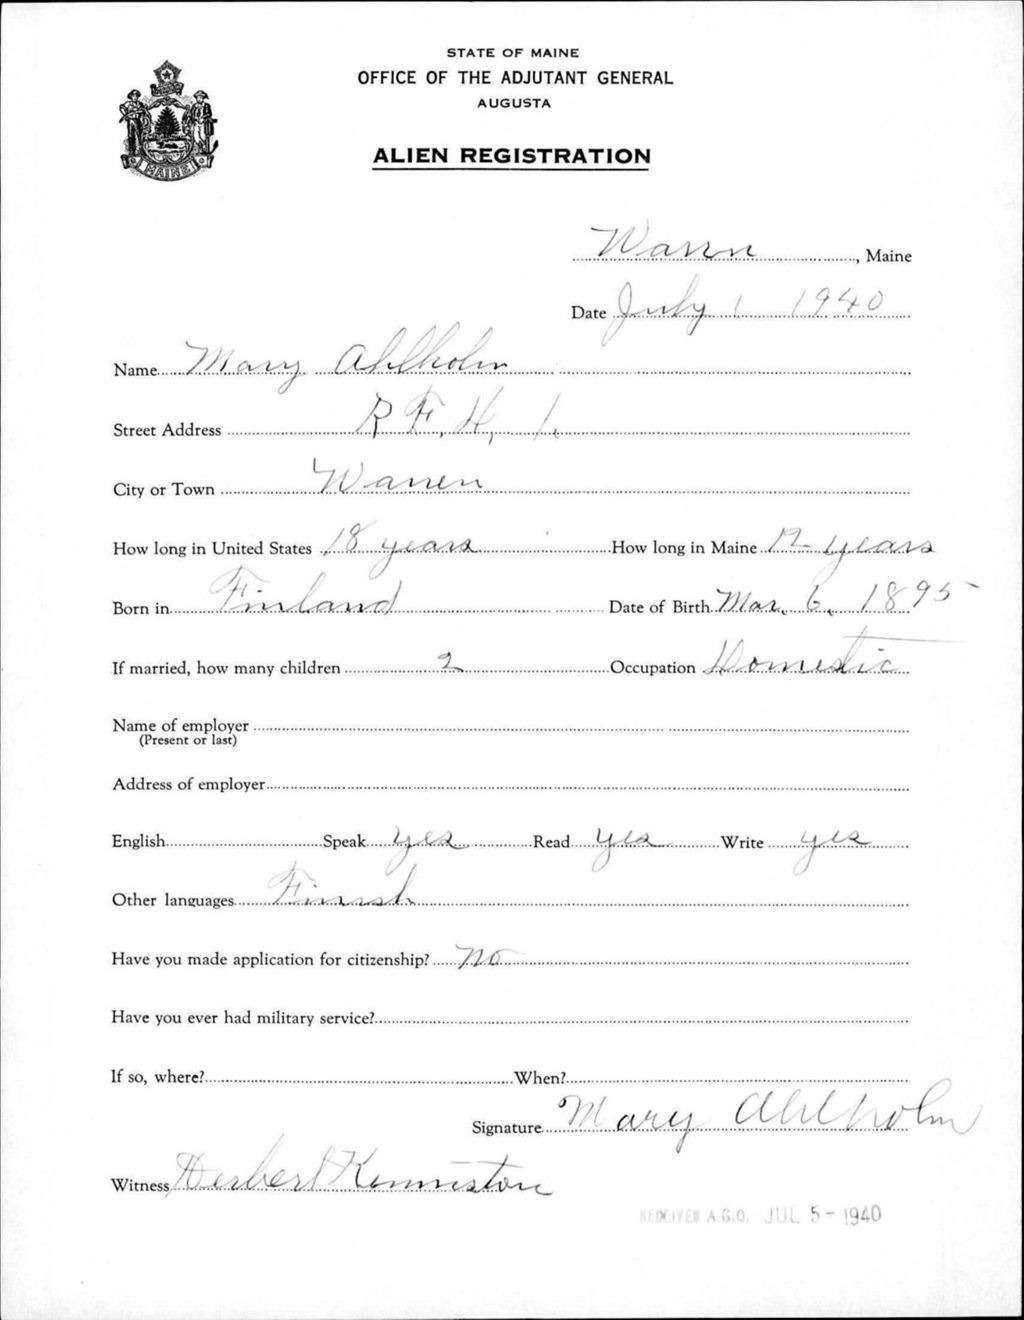 STATE OF MAINE
OFFICE OF THE ADJUTANT GENERAL
AUGUSTA
ALIEN REGISTRATION
MAINE
Warren, Maine
Date July 1 1940
Name Mary Ahlholm
Street Address R.F.H, 1.
City or Town Warren
How long in United States 18 years How long in Maine 12 years
Born in Finland Date of Birth Mar. 6, 1895
If married, how many children 2 Occupation Domestic
Name of employer
(Present or last)
Address of employer
English Speak yes Read yes Write yes
Other languages Finnsh
Have you made application for citizenship? no
Have you ever had military service?
If so, where? When?
Signature Mary Ahlholm
Witness Herbert Kenniston
RECEIVED A.G.O. JUL 5 - 1940